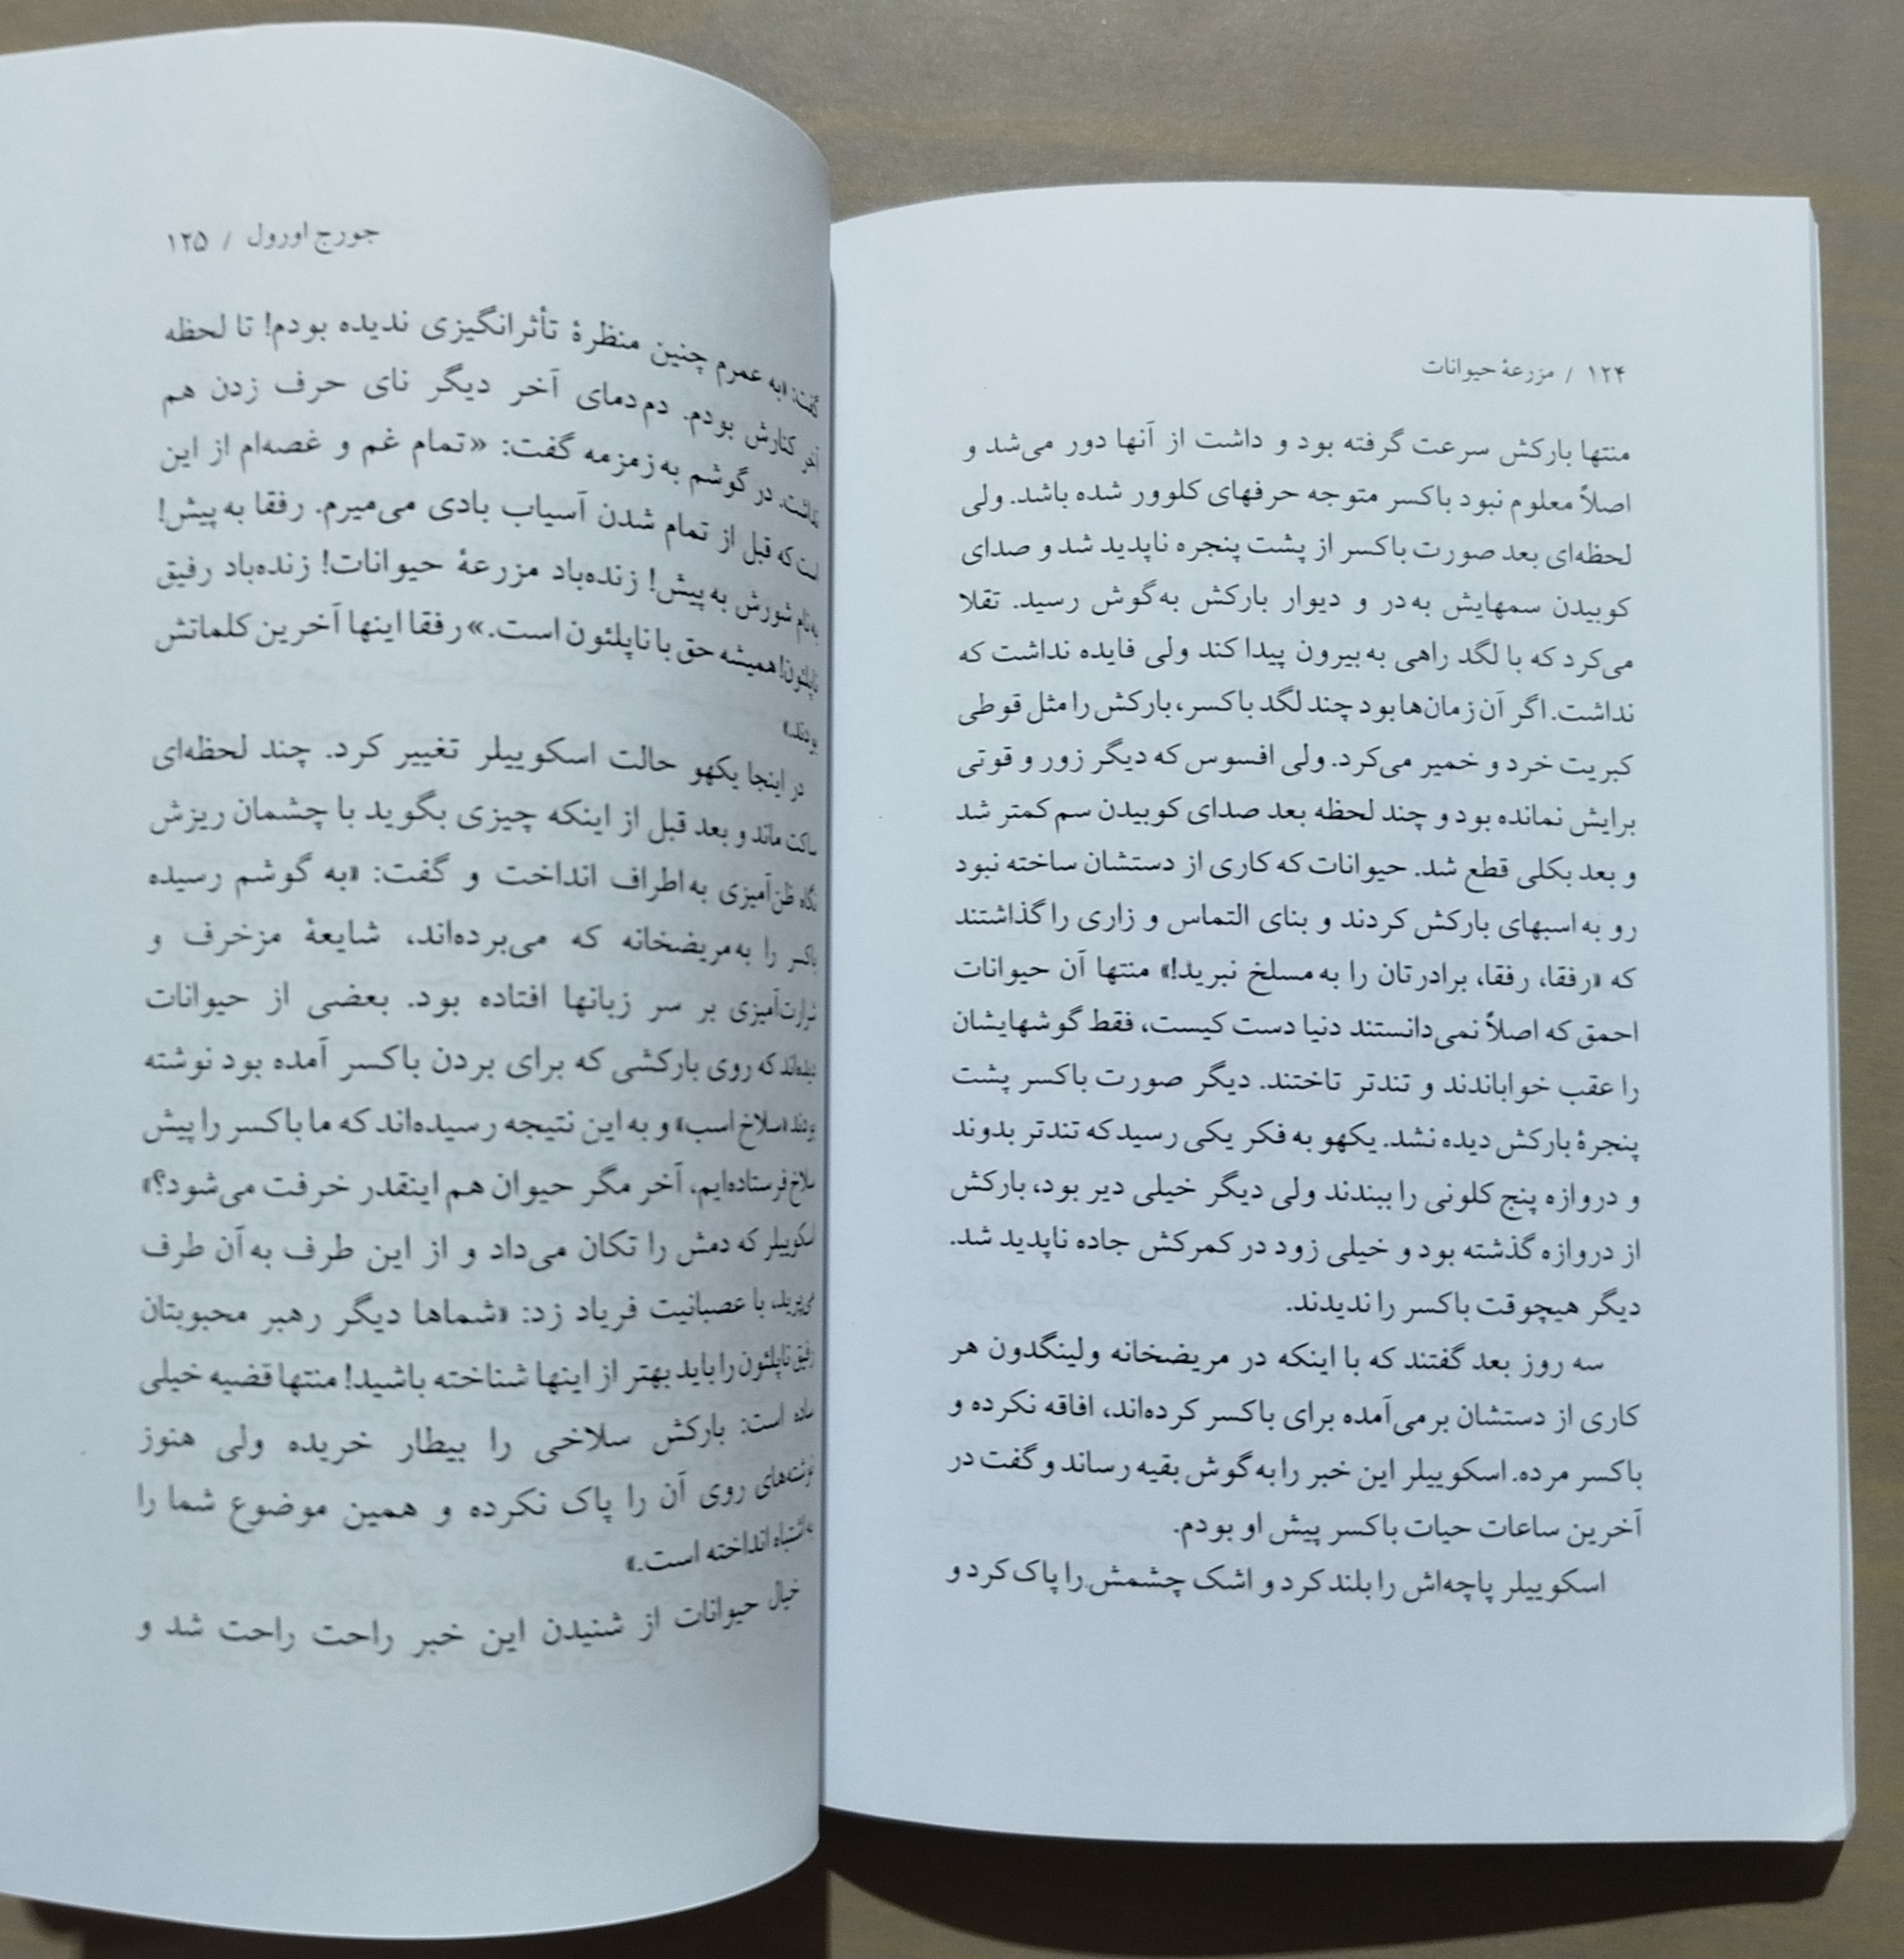 ۱۲۴ / مزرعهٔ حیوانات
منتها بارکش سرعت گرفته بود و داشت از آنها دور می‌شد و
اصلاً معلوم نبود باکسر متوجه حرفهای کلوور شده باشد. ولی
لحظه‌ای بعد صورت باکسر از پشت پنجره ناپدید شد و صدای
کوبیدن سمهایش به‌در و دیوار بارکش به‌گوش رسید. تقلا
می‌کرد که با لگد راهی به‌بیرون پیدا کند ولی فایده نداشت که
نداشت. اگر آن زمان‌ها بود چند لگد باکسر، بارکش را مثل قوطی
کبریت خرد و خمیر می‌کرد. ولی افسوس که دیگر زور و قوتی
برایش نمانده بود و چند لحظه بعد صدای کوبیدن سم کمتر شد
و بعد بکلی قطع شد. حیوانات که کاری از دستشان ساخته نبود
رو به اسبهای بارکش کردند و بنای التماس و زاری را گذاشتند
که «رفقا، رفقا، برادرتان را به‌مسلخ نبرید!» منتها آن حیوانات
احمق که اصلاً نمی‌دانستند دنیا دست کیست، فقط گوشهایشان
را عقب خواباندند و تندتر تاختند. دیگر صورت باکسر پشت
پنجرهٔ بارکش دیده نشد. یکهو به فکر یکی رسید که تندتر بدوند
و دروازه پنج کلونی را ببندند ولی دیگر خیلی دیر بود، بارکش
از دروازه گذشته بود و خیلی زود در کمرکش جاده ناپدید شد.
دیگر هیچوقت باکسر را ندیدند.
سه روز بعد گفتند که با اینکه در مریضخانه ولینگدون هر
کاری از دستشان برمی‌آمده برای باکسر کرده‌اند، افاقه نکرده و
باکسر مرده. اسکوییلر این خبر را به‌گوش بقیه رساند و گفت در
آخرین ساعات حیات باکسر پیش او بودم.
اسکوییلر پاچه‌اش را بلند کرد و اشک چشمش را پاک کرد و
جورج اورول / ۱۲۵
گفت: «به عمرم چنین منظرهٔ تأثرانگیزی ندیده بودم! تا لحظه
آخر کنارش بودم. دم‌دمای آخر دیگر نای حرف زدن هم
نداشت. در گوشم به‌زمزمه گفت: «تمام غم و غصه‌ام از این
است که قبل از تمام شدن آسیاب بادی می‌میرم. رفقا به‌پیش!
به‌نام شورش به‌پیش! زنده‌باد مزرعهٔ حیوانات! زنده‌باد رفیق
ناپلئون! همیشه حق با ناپلئون است.» رفقا اینها آخرین کلماتش
بودند.»
در اینجا یکهو حالت اسکوییلر تغییر کرد. چند لحظه‌ای
ساکت ماند و بعد قبل از اینکه چیزی بگوید با چشمان ریزش
نگاه ظن‌آمیزی به‌اطراف انداخت و گفت: «به گوشم رسیده
باکسر را به‌مریضخانه که می‌برده‌اند، شایعهٔ مزخرف و
شرارت‌آمیزی بر سر زبانها افتاده بود. بعضی از حیوانات
دیده‌اند که روی بارکشی که برای بردن باکسر آمده بود نوشته
بودند «سلاخ اسب» و به این نتیجه رسیده‌اند که ما باکسر را پیش
سلاخ فرستاده‌ایم، آخر مگر حیوان هم اینقدر خرفت می‌شود؟»
اسکوییلر که دمش را تکان می‌داد و از این طرف به آن طرف
می‌پرید، با عصبانیت فریاد زد: «شماها دیگر رهبر محبوبتان
رفیق ناپلئون را باید بهتر از اینها شناخته باشید! منتها قضیه خیلی
ساده است: بارکش سلاخی را بیطار خریده ولی هنوز
نوشته‌های روی آن را پاک نکرده و همین موضوع شما را
به‌اشتباه انداخته است.»
خیال حیوانات از شنیدن این خبر راحت راحت شد و